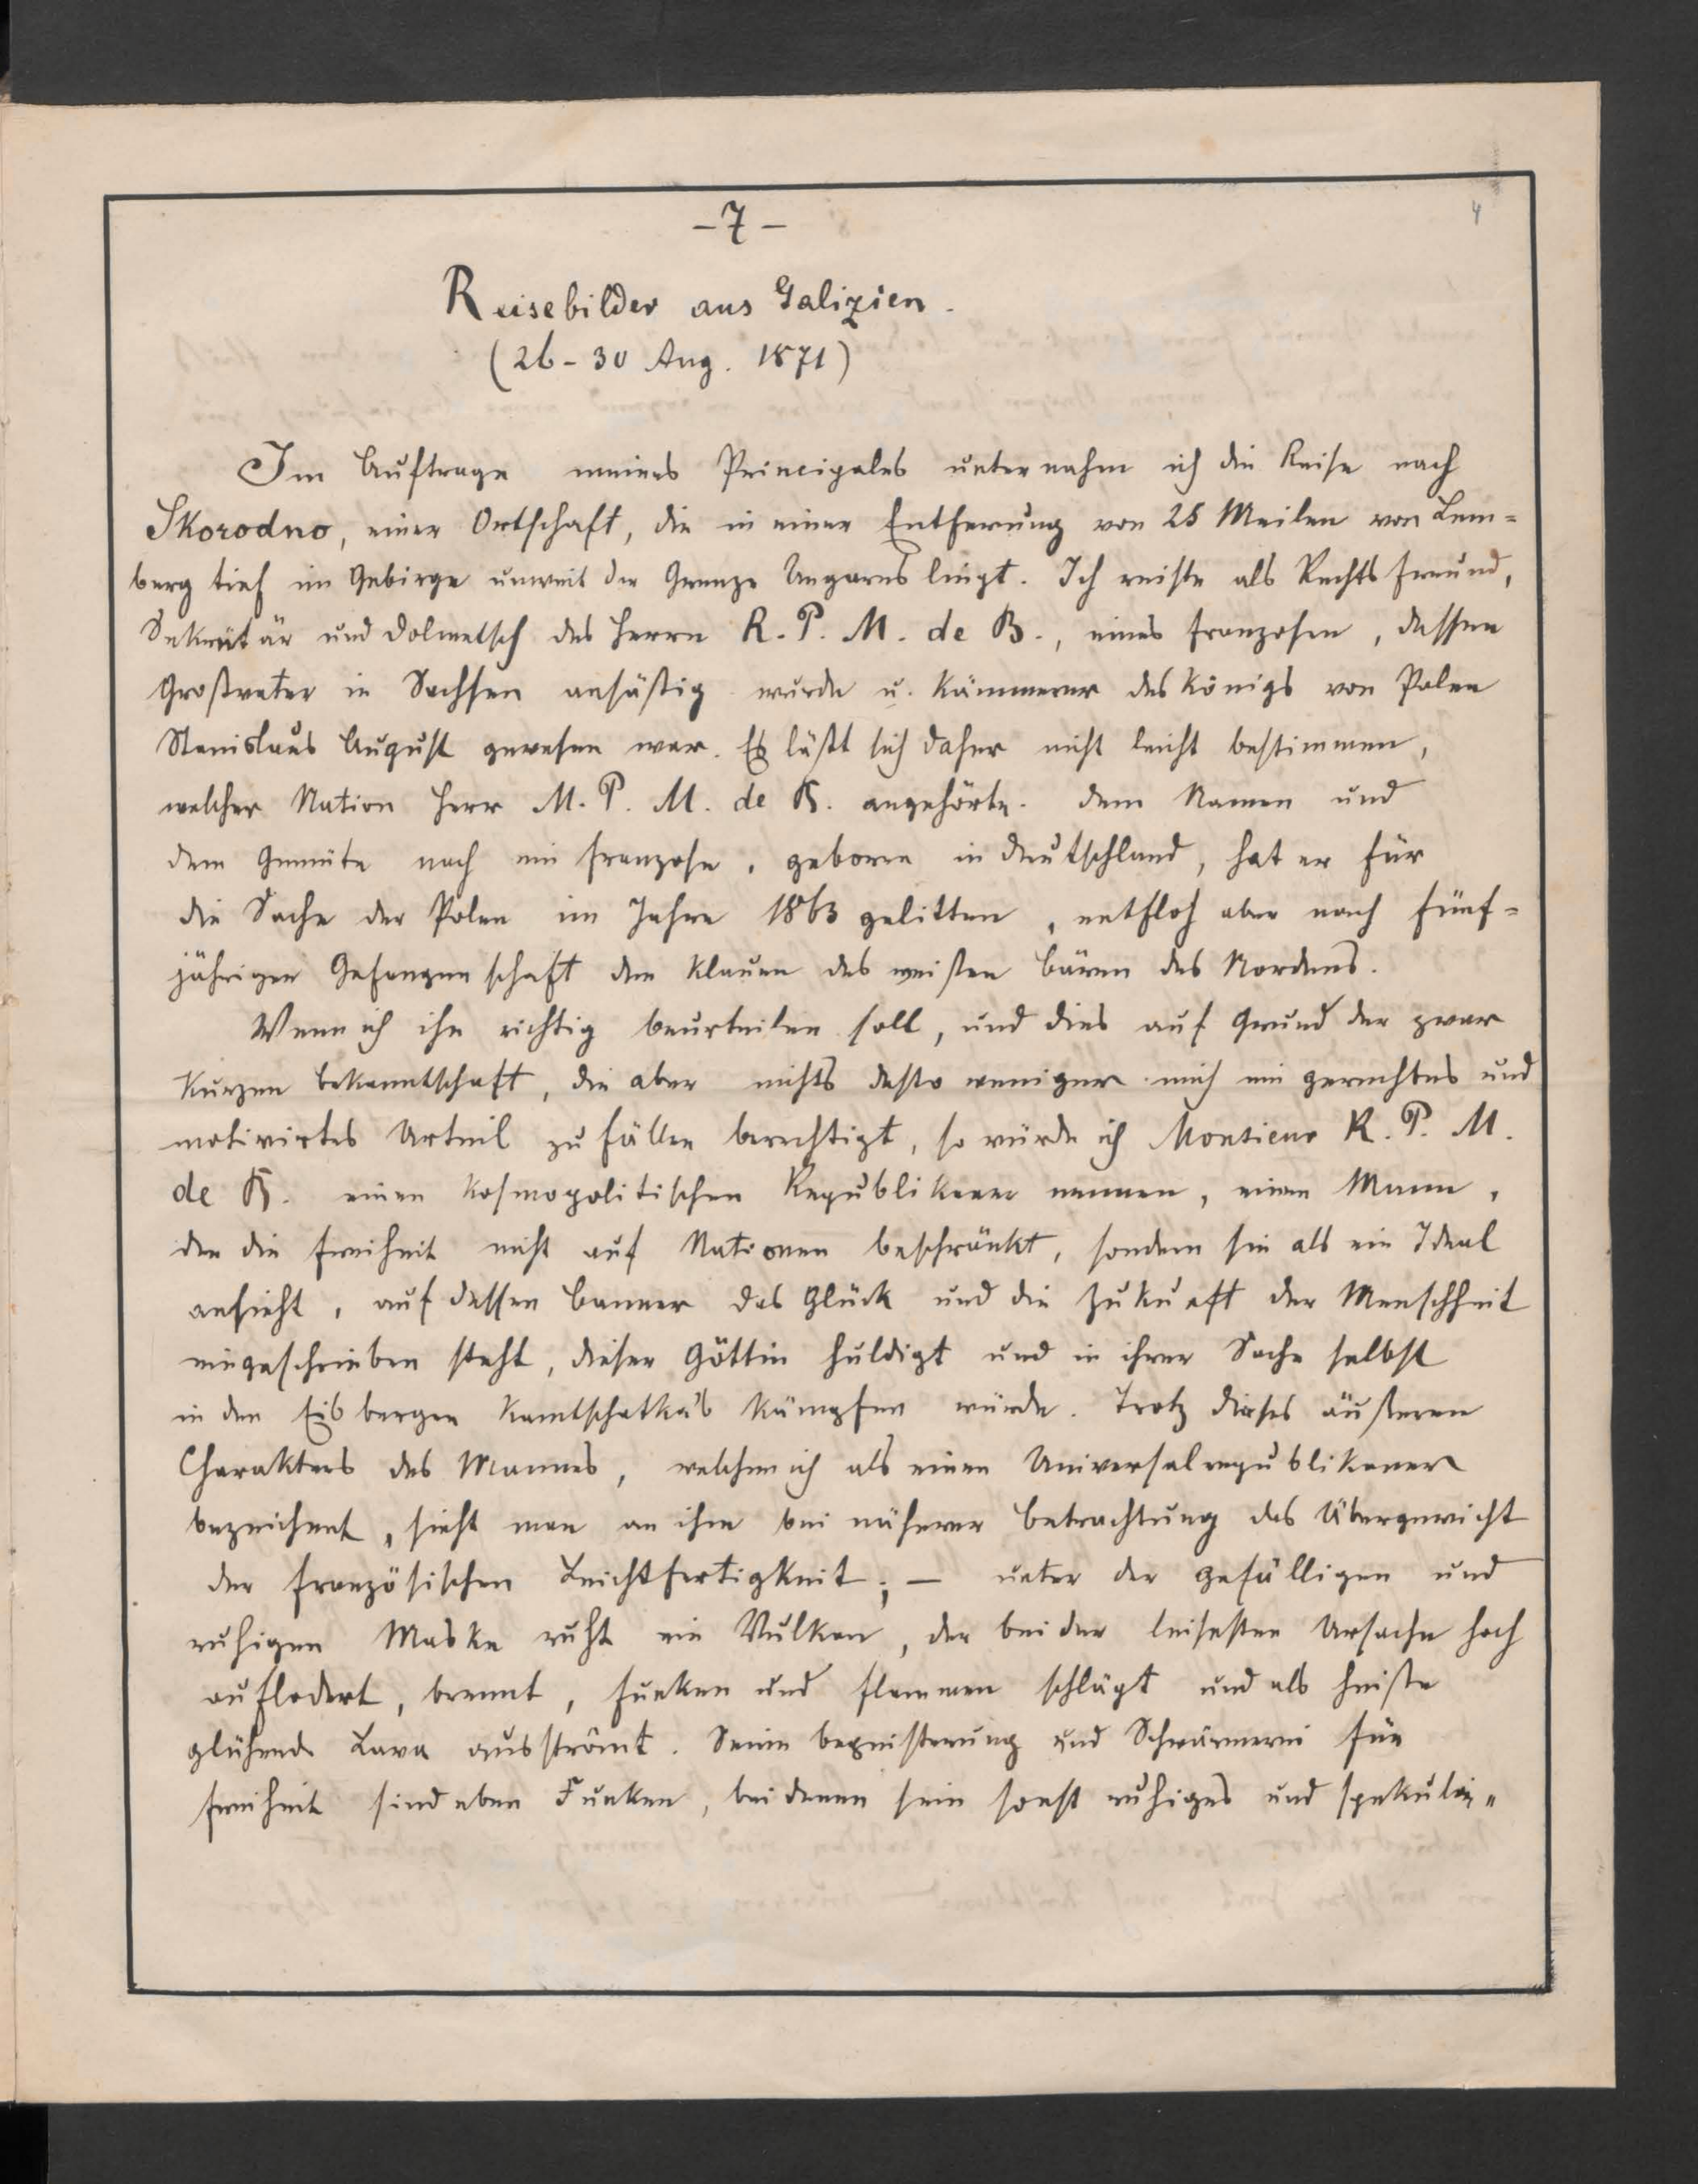 - 7 -
4
Reisebilder aus Galizien.
(26 - 30 Aug. 1871)
Im Auftrage meines Principales unternahm ich die Reise nach
Skorodno, einer Ortschaft, die in einer Entfernung von 25 Meilen von Lem=
berg tief im Gebirge unweit der Grenze Ungarns liegt. Ich reiste als Rechtsfreund,
Sekretär und Dolmetsch des Herrn R. P. M. de B., eines Franzosen, dessen
Großvater in Sachsen ansäßig wurde u. Kämmerer des Königs von Polen
Stanislaus August gewesen war. Es läßt sich daher nicht leicht bestimmen,
welcher Nation Herr M. P. M. de B. angehörte. Dem Namen und
dem Gemüte nach ein Franzose, geboren in Deutschland, hat er für
die Sache der Polen im Jahre 1863 gelitten, entfloh aber nach fünf=
jähriger Gefangenschaft den Klauen des weißen Bären des Nordens.
Wenn ich ihn richtig beurteilen soll, und dies auf Grund der zwar
kurzen Bekanntschaft, die aber nichts desto weniger mich ein gerechtes und
motivirtes Urteil zu fällen berechtigt, so würde ich Monsieur R. P. M.
de B. einen kosmopolitischen Republikaner nennen, einen Mann,
der die Freiheit nicht auf Nationen beschränkt, sondern sie als ein Ideal
ansieht, auf dessen Banner das Glück und die Zukunft der Menschheit
eingeschrieben steht, dieser Göttin huldigt und in ihrer Sache selbst
in den Eisbergen Kamtschatka's kämpfen würde. Trotz dieses äußeren
Charakters des Mannes, welchen ich als einen Universalrepublikaner
bezeichent, sieht man an ihm bei näherer Betrachtung das Übergewicht
der französischen Leichtfertigkeit; — unter der gefälligen und
ruhigen Maske ruht ein Vulkan, der bei der leisesten Ursache hoch
auflodert, brennt, Funken und Flammen schlägt und als heiße
glühende Lava ausströmt. Seine Begeisterung und Schwärmerei für
Freiheit sind eben Funken, bei denen sein sonst ruhiges und spekuli=